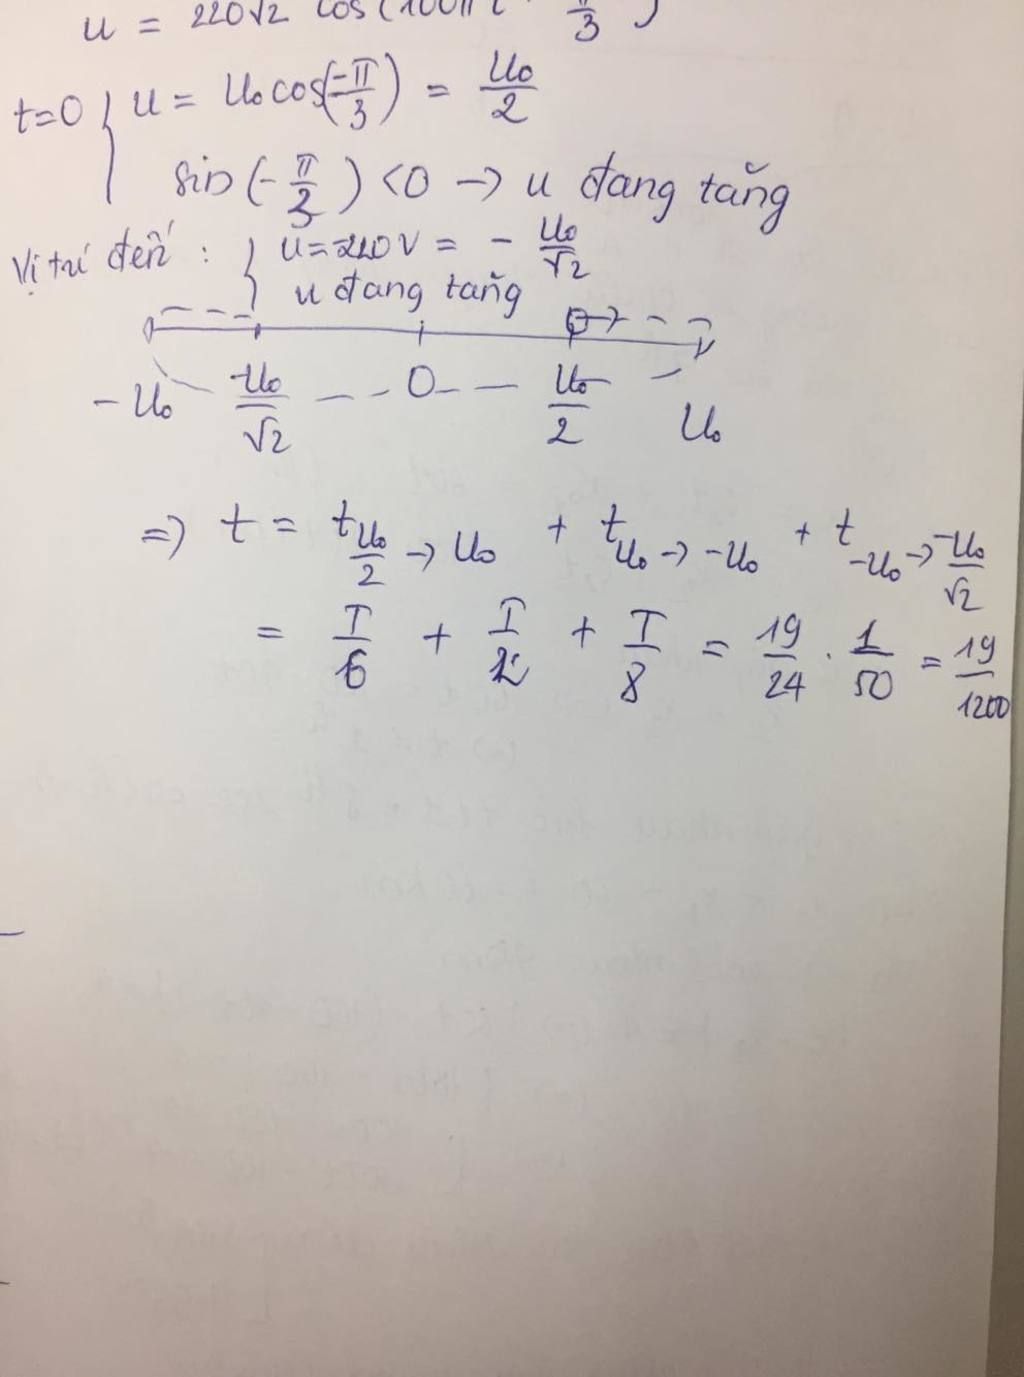 u = 220√2 cos(100πt - π/3)
t=0 { u = U₀cos(-π/3) = U₀/2
sin(-π/3) <0 → u đang tăng
Vị trí đến : { u=220V = - U₀/√2
u đang tăng
-U₀ -U₀/√2 0 U₀/2 U₀
=> t = t U₀/2 → U₀ + t U₀ → -U₀ + t -U₀ → -U₀/√2
= T/6 + T/2 + T/8 = 19/24 . 1/50 = 19/1200